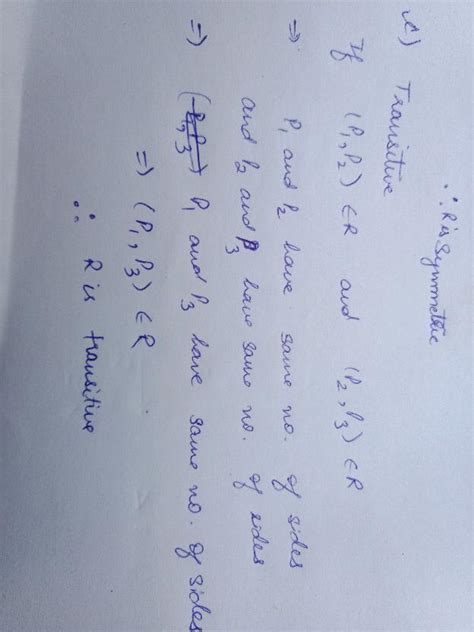 ∴ R is symmetric
c) Transitive
If (P₁, P₂) ∈ R and (P₂, P₃) ∈ R
⇒ P₁ and P₂ have same no. of sides
and P₂ and P₃ have same no. of sides
⇒ P₁ and P₃ have same no. of sides
⇒ (P₁, P₃) ∈ R
∴ R is transitive